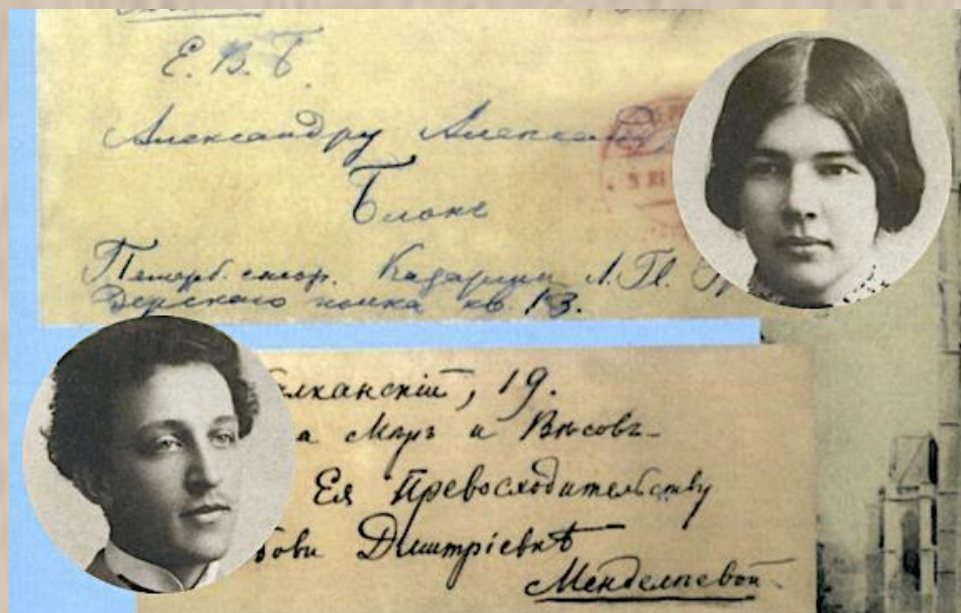 Е. В. Б.
Александру Александ
Блоку
Петерб. стор. Казармы Л. Гв. Гр
дерского полка кв. 13.
лканскій, 19.
а Мѣръ и Вѣсовъ
Ея Превосходительству
бови Дмитріевнѣ
Менделѣевой